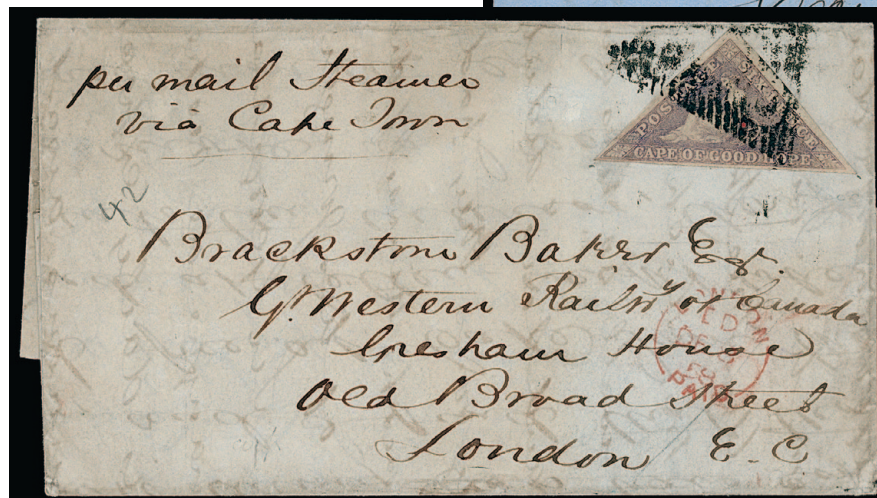 per mail Steamer
via Cape Town
POSTAGE
SIX PENCE
CAPE OF GOOD HOPE
42
Brackstone Baker Esqr.
Gt. Western Railwy of Canada
Gresham House
Old Broad Street
London E.C
LONDON
PAID